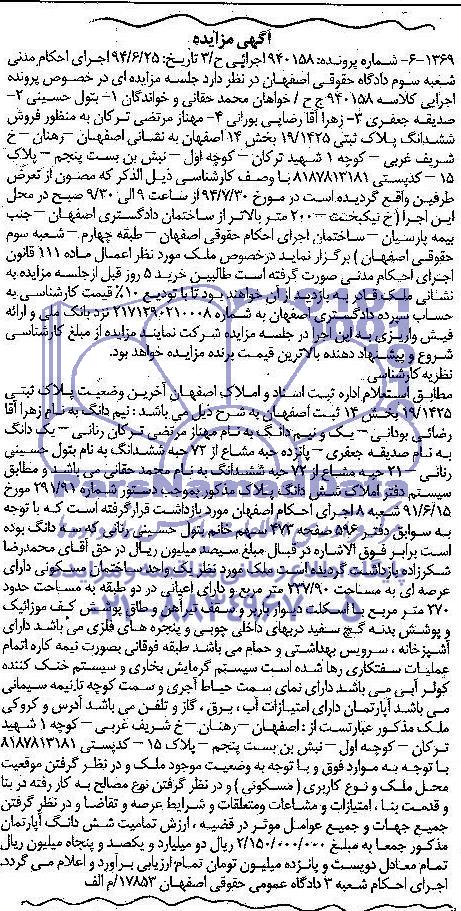 آگهی مزایده
۱۳۶۹-۶- شماره پرونده: ۹۴۰۱۵۸ اجرائی ح/۳ تاریخ: ۹۴/۶/۲۵ اجرای احکام مدنی
شعبه سوم دادگاه حقوقی اصفهان در نظر دارد جلسه مزایده ای در خصوص پرونده
اجرایی کلاسه ۹۴۰۱۵۸ ج ح / خواهان محمد حقانی و خواندگان ۱- بتول حسینی ۲-
صدیقه جعفری ۳- زهرا آقا رضایی بورانی ۴- مهناز مرتضی ترکان به منظور فروش
ششدانگ پلاک ثبتی ۱۹/۱۴۲۵ بخش ۱۴ اصفهان به نشانی اصفهان - رهنان - خ
شریف غربی - کوچه ۱ شهید ترکان - کوچه اول - نبش بن بست پنجم - پلاک
۱۵ - کدپستی ۸۱۸۷۸۱۳۱۸۱ با وصف کارشناسی ذیل الذکر که مصون از تعرض
طرفین واقع گردیده است در مورخ ۹۴/۷/۳۰ از ساعت ۹ الی ۹/۳۰ صبح در محل
این اجرا (خ نیکبخت - ۲۰۰ متر بالاتر از ساختمان دادگستری اصفهان - جنب
بیمه پارسیان - ساختمان اجرای احکام حقوقی اصفهان - طبقه چهارم - شعبه سوم
حقوقی اصفهان) برگزار نماید درخصوص ملک مورد نظر اعمال ماده ۱۱۱ قانون
اجرای احکام مدنی صورت گرفته است طالبین خرید ۵ روز قبل ازجلسه مزایده به
نشانی ملک قادر به بازدید از آن خواهند بود تا با تودیع ۱۰٪ قیمت کارشناسی به
حساب سپرده دادگستری اصفهان به شماره ۲۱۷۱۳۹۰۲۱۰۰۰۸ نزد بانک ملی و ارائه
فیش واریزی به این اجرا در جلسه مزایده شرکت نمایند مزایده از مبلغ کارشناسی
شروع و پیشنهاد دهنده بالاترین قیمت برنده مزایده خواهد بود.
نظریه کارشناسی
مطابق استعلام اداره ثبت اسناد و املاک اصفهان آخرین وضعیت پلاک ثبتی
۱۹/۱۴۲۵ بخش ۱۴ ثبت اصفهان به شرح ذیل می باشد: نیم دانگ به نام زهرا آقا
رضائی بودانی - یک و نیم دانگ به نام مهناز مرتضی ترکان رنانی - یک دانگ
به نام صدیقه جعفری - پانزده حبه مشاع از ۷۲ حبه ششدانگ به نام بتول حسینی
رنانی - ۲۱ حبه مشاع از ۷۲ حبه ششدانگ به نام محمد حقانی می باشد و مطابق
سیستم دفتر املاک شش دانگ پلاک مذکور بموجب دستور شماره ۲۹۱/۹۱ مورخ
۹۱/۶/۱۵ شعبه ۸ اجرای احکام اصفهان مورد بازداشت قرار گرفته است که با توجه
به سوابق دفتر ۵۹۶ صفحه ۳۷۳ سهم خانم بتول حسینی رنانی که سه دانگ بوده
است برابر فوق الاشاره در قبال مبلغ سیصد میلیون ریال در حق آقای محمدرضا
شکرزاده بازداشت گردیده است ملک مورد نظر یک واحد ساختمان مسکونی دارای
عرصه ای به مساحت ۲۳۷/۹۰ متر مربع و دارای اعیانی در دو طبقه به مساحت حدود
۲۷۰ متر مربع با اسکلت دیوار باربر و سقف تیرآهن و طاق پوشش کف موزائیک
و پوشش بدنه گچ سفید دربهای داخلی چوبی و پنجره های فلزی می باشد دارای
آشپزخانه، سرویس بهداشتی و حمام می باشد طبقه فوقانی بصورت نیمه کاره اتمام
عملیات سفتکاری رها شده است سیستم گرمایش بخاری و سیستم خنک کننده
کولر آبی می باشد دارای نمای سمت حیاط آجری و سمت کوچه تا نیمه سیمانی
می باشد آپارتمان دارای امتیازات آب، برق، گاز و تلفن می باشد آدرس و کروکی
ملک مذکور عبارتست از: اصفهان - رهنان - خ شریف غربی - کوچه ۱ شهید
ترکان - کوچه اول - نبش بن بست پنجم - پلاک ۱۵ - کدپستی ۸۱۸۷۸۱۳۱۸۱
با توجه به موارد فوق و با توجه به وضعیت موجود ملک و در نظر گرفتن موقعیت
محل ملک و نوع کاربری (مسکونی) و در نظر گرفتن نوع مصالح به کار رفته در بنا
و قدمت بنا، امتیازات و مشاعات ومتعلقات و شرایط عرصه و تقاضا و در نظر گرفتن
جمیع جهات و جمیع عوامل موثر در قضیه، ارزش تمامیت شش دانگ آپارتمان
مذکور جمعا به مبلغ ۲/۱۵۰/۰۰۰/۰۰۰ ریال دو میلیارد و یکصد و پنجاه میلیون ریال
تمام معادل دویست و پانزده میلیون تومان تمام ارزیابی برآورد و اعلام می گردد.
اجرای احکام شعبه ۳ دادگاه عمومی حقوقی اصفهان ۱۷۸۵۳/م الف
ParsNamadData